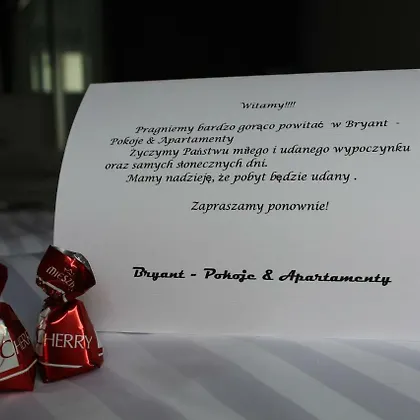 Witamy!!!!
Pragniemy bardzo gorąco powitać w Bryant -
Pokoje & Apartamenty
Życzymy Państwu miłego i udanego wypoczynku
oraz samych słonecznych dni.
Mamy nadzieję, że pobyt będzie udany .
Zapraszamy ponownie!
Bryant - Pokoje & Apartamenty
CHERRY